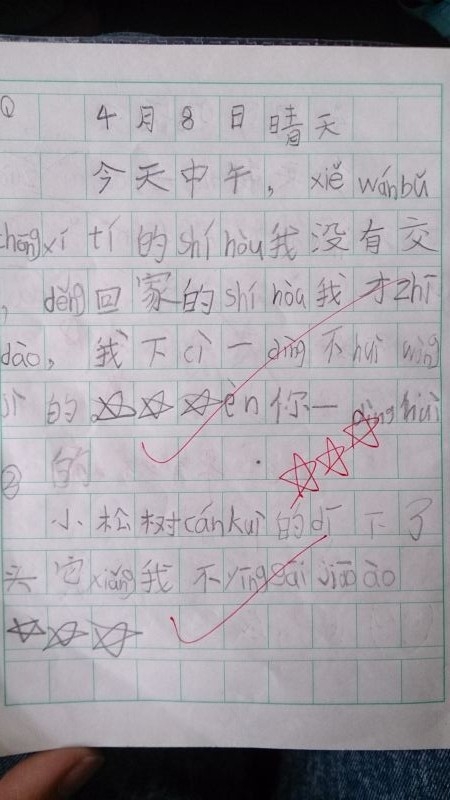 ① 4月8日 晴天
今天中午，xiě wán bǔ
chōng xí tí 的 shí hòu 我没有交
，děng 回家的 shí hòu 我才 zhī
dào，我下 cì 一 dìng 不 huì wàng
jì 的 èn 你一 dìng huì
的
②
小松树 cán kuì 的 dī 下了
头它 xiǎng 我不 yīng gāi jiāo ào